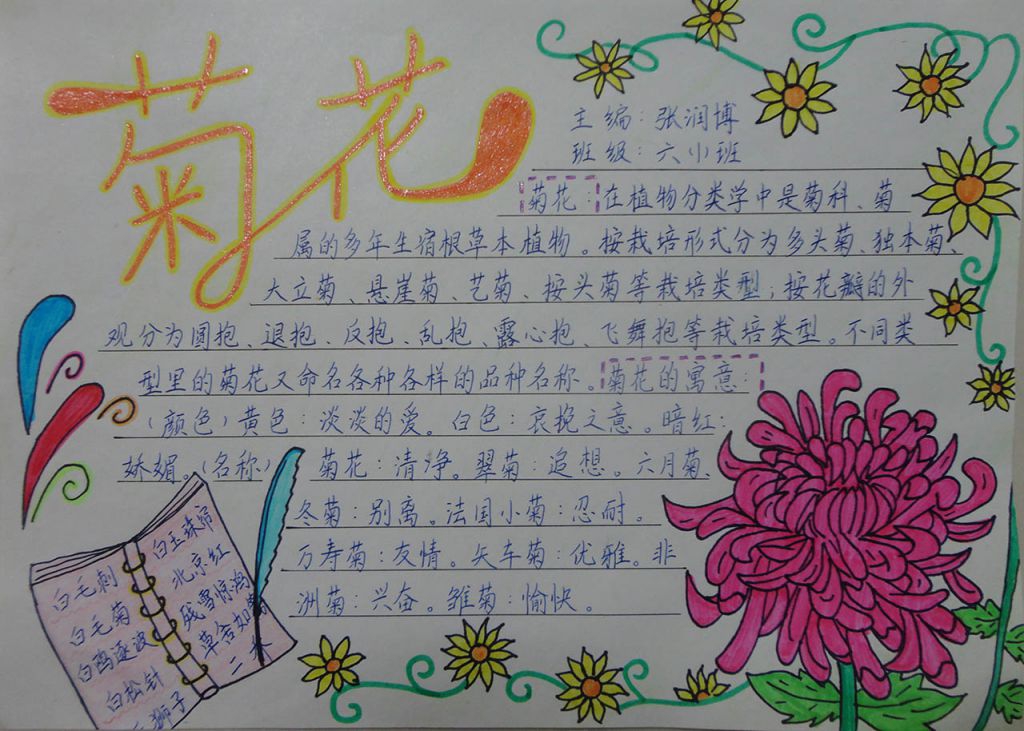 菊花
主编：张润博
班级：六小班
菊花：在植物分类学中是菊科、菊
属的多年生宿根草本植物。按栽培形式分为多头菊、独本菊、
大立菊、悬崖菊、艺菊、按头菊等栽培类型；按花瓣的外
观分为圆抱、退抱、反抱、乱抱、露心抱、飞舞抱等栽培类型。不同类
型里的菊花又命名各种各样的品种名称。菊花的寓意：
（颜色）黄色：淡淡的爱。白色：哀挽之意。暗红：
娇媚。（名称） 菊花：清净。翠菊：追想。六月菊、
冬菊：别离。法国小菊：忍耐。
万寿菊：友情。矢车菊：优雅。非
洲菊：兴奋。雏菊：愉快。
白毛刺
白毛菊
白鸥逐波
白松针
狮子
白玉珠帘
北京红
残雪惊鸿
草舍如
二